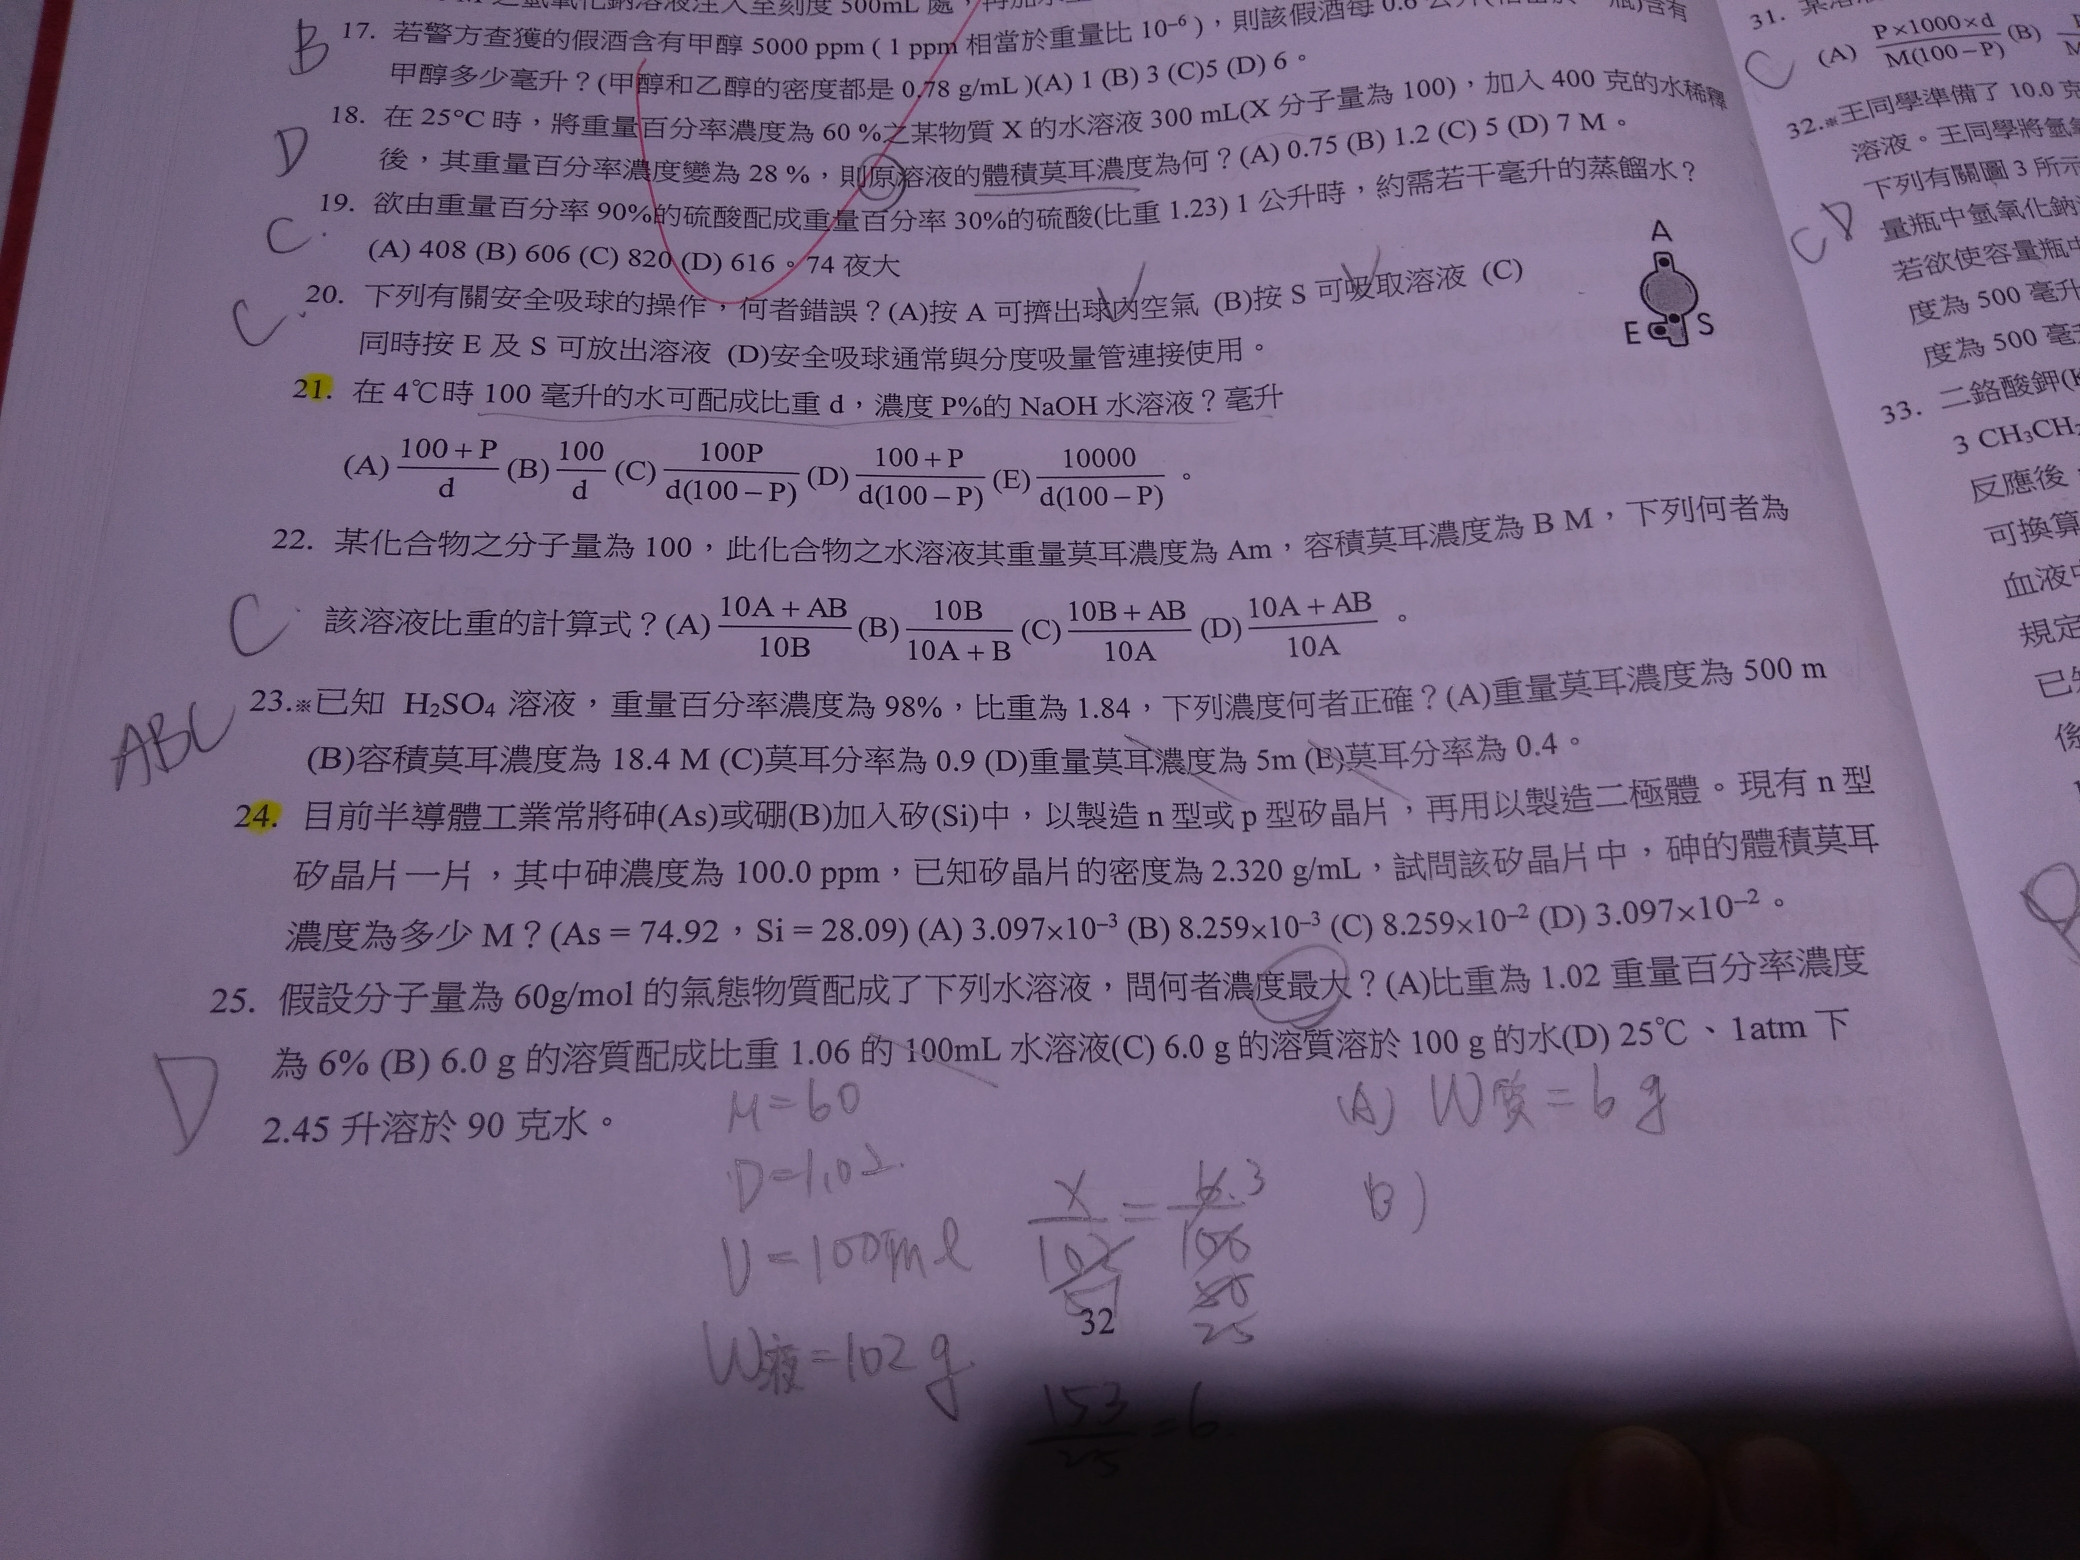 之氫氧化鈉溶液注入至刻度 500mL 處，再加水
B
17. 若警方查獲的假酒含有甲醇 5000 ppm ( 1 ppm 相當於重量比 10⁻⁶ )，則該假酒每 0.6 公升
甲醇多少毫升？(甲醇和乙醇的密度都是 0.78 g/mL )(A) 1 (B) 3 (C)5 (D) 6。
D
18. 在 25°C 時，將重量百分率濃度為 60 %之某物質 X 的水溶液 300 mL(X 分子量為 100)，加入 400 克的水稀釋
後，其重量百分率濃度變為 28 %，則原溶液的體積莫耳濃度為何？(A) 0.75 (B) 1.2 (C) 5 (D) 7 M。
C.
19. 欲由重量百分率 90%的硫酸配成重量百分率 30%的硫酸(比重 1.23) 1 公升時，約需若干毫升的蒸餾水？
(A) 408 (B) 606 (C) 820 (D) 616。74 夜大
C.
20. 下列有關安全吸球的操作，何者錯誤？(A)按 A 可擠出球內空氣 (B)按 S 可吸取溶液 (C)
同時按 E 及 S 可放出溶液 (D)安全吸球通常與分度吸量管連接使用。
A
E S
21. 在 4℃時 100 毫升的水可配成比重 d，濃度 P%的 NaOH 水溶液？毫升
(A) (100 + P)/d (B) 100/d (C) 100P/d(100 − P) (D) (100 + P)/d(100 − P) (E) 10000/d(100 − P)。
22. 某化合物之分子量為 100，此化合物之水溶液其重量莫耳濃度為 Am，容積莫耳濃度為 B M，下列何者為
C.
該溶液比重的計算式？(A) (10A + AB)/10B (B) 10B/(10A + B) (C) (10B + AB)/10A (D) (10A + AB)/10A。
ABC
23.※已知 H₂SO₄ 溶液，重量百分率濃度為 98%，比重為 1.84，下列濃度何者正確？(A)重量莫耳濃度為 500 m
(B)容積莫耳濃度為 18.4 M (C)莫耳分率為 0.9 (D)重量莫耳濃度為 5m (E)莫耳分率為 0.4。
24. 目前半導體工業常將砷(As)或硼(B)加入矽(Si)中，以製造 n 型或 p 型矽晶片，再用以製造二極體。現有 n 型
矽晶片一片，其中砷濃度為 100.0 ppm，已知矽晶片的密度為 2.320 g/mL，試問該矽晶片中，砷的體積莫耳
濃度為多少 M？(As = 74.92，Si = 28.09) (A) 3.097×10⁻³ (B) 8.259×10⁻³ (C) 8.259×10⁻² (D) 3.097×10⁻²。
25. 假設分子量為 60g/mol 的氣態物質配成了下列水溶液，問何者濃度最大？(A)比重為 1.02 重量百分率濃度
D
為 6% (B) 6.0 g 的溶質配成比重 1.06 的 100mL 水溶液(C) 6.0 g 的溶質溶於 100 g 的水(D) 25℃、1atm 下
2.45 升溶於 90 克水。
M=60
D=1.02
V=100ml
W液=102g
153/25 = 6
(A) W質=6g
B)
32
31.
C
(A) P×1000×d/M(100−P) (B)
32.※王同學準備了 10.0 克
溶液。王同學將氫氧
下列有關圖 3 所示
CD
量瓶中氫氧化鈉
若欲使容量瓶中
度為 500 毫升
度為 500 毫
33. 二鉻酸鉀(
3 CH₃CH₂
反應後
可換算
血液中
規定